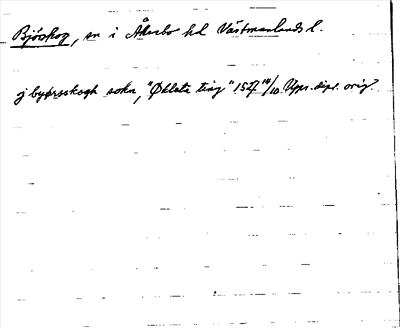 Bjöskog, sn i Åkerbo hd Västmanlands l.
j byørsskogh sokn, "Øklsta ting" 1527 14/10 Upps. dipl. orig.